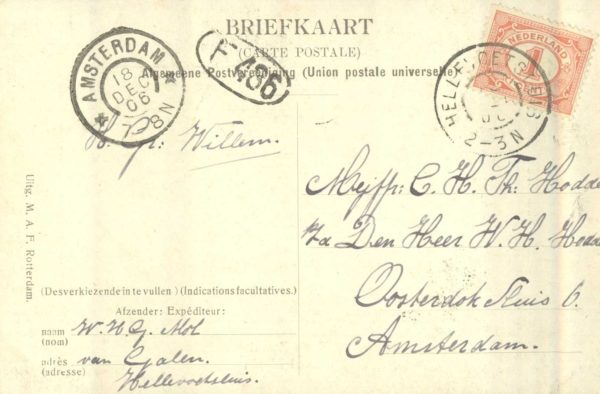 BRIEFKAART
(CARTE POSTALE)
Algemeene Postvereeniging (Union postale universelle)
AMSTERDAM
18
DEC
06
7-8N
F 486
NEDERLAND
1
HELLEVOETSLUIS
2-3N
Willem.
Mejffr: C. H. Th: Hodde
Den Heer W. H. Hodde
Oosterdok Sluis 6.
Amsterdam.
Uitg. M. A. F. Rotterdam.
(Desverkiezende in te vullen) (Indications facultatives.)
Afzender: Expéditeur:
naam W. H. G. Mol
(nom)
adrès van Galen.
(adresse) Hellevoetsluis.